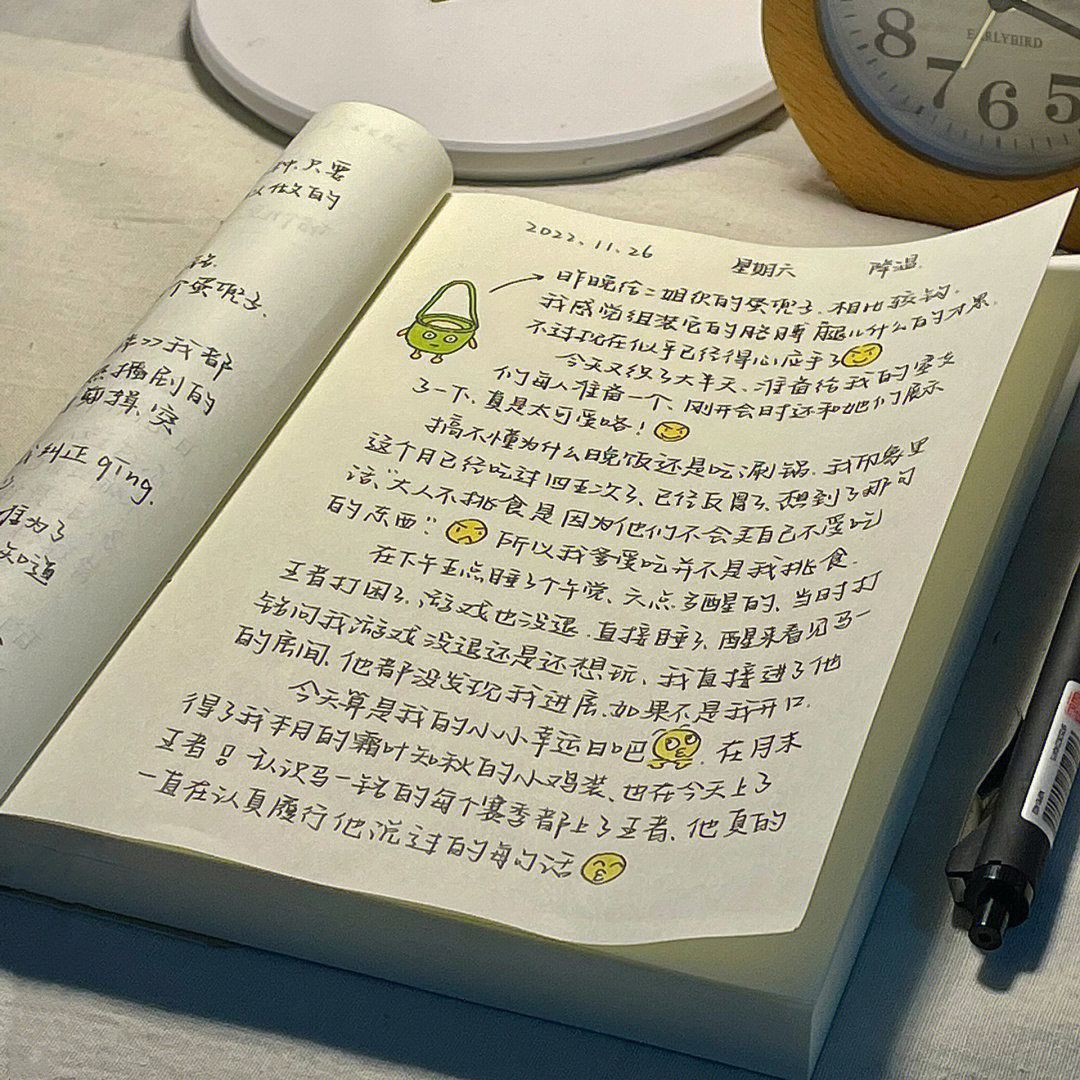 只要
做的
个蛋兜子.
我都
播剧的
即揖.突
纠正qīng.
准为了
知道
2022.11.26 星期六 降温.
昨晚给二姐织的蛋兜子.相比较钩.
我感觉组装它的胳膊腿儿什么的才累.
不过现在似乎已经得心应手了
今天又织了大半天、准备给我的室友
们每人准备一个、刚开会时还和她们展示
了一下、真是太可爱咯!
搞不懂为什么晚饭还是吃涮锅.我印象里
这个月已经吃过四五次了、已经反胃了、想到了那句
话、“大人不挑食是因为他们不会买自己不爱吃
的东西” 所以我爹爱吃并不是我挑食.
在下午五点睡了个午觉、六点多醒的、当时打
王者打困了、游戏也没退.直接睡了、醒来看见马一
铭问我游戏没退还是还想玩、我直接进了他
的房间、他都没发现我进房、如果不是我开口.
今天算是我的小小幸运日吧 .在月末
得了我本月的霜叶知秋的小鸡装、也在今天上了
王者!认识马一铭的每个赛季都上了王者、他真的
一直在认真履行他说过的每句话
EARLYBIRD
8
7
6
5